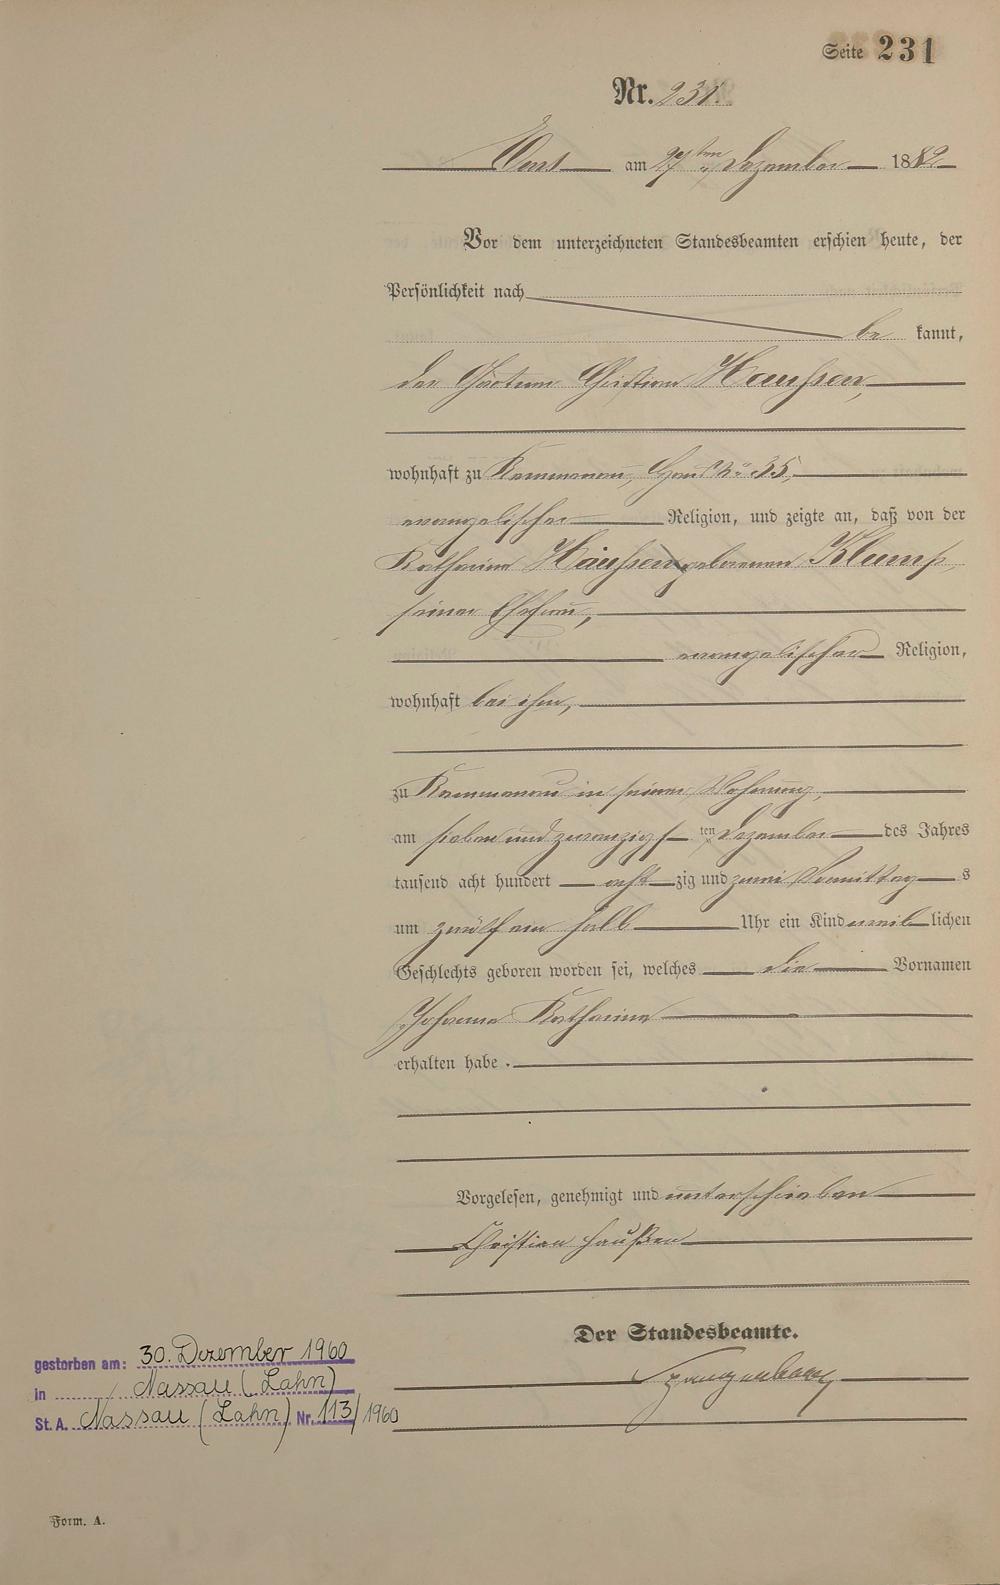 Seite 231
Nr. 231.
Ems am 27ten Dezember 1882
Vor dem unterzeichneten Standesbeamten erschien heute, der
Persönlichkeit nach
be kannt,
der Christian Haußen,
wohnhaft zu Kemmenau, Haus No 35,
evangelischer Religion, und zeigte an, daß von der
Katharine Haußen geborenen Klump,
seiner Ehefrau,
evangelischer Religion,
wohnhaft bei ihm,
zu Kemmenau in seiner Wohnung,
am sieben und zwanzigsten Dezember des Jahres
tausend acht hundert acht zig und zwei Vormittag s
um zwölf ein halb Uhr ein Kind weib lichen
Geschlechts geboren worden sei, welches die Vornamen
Johanna Katharine
erhalten habe.
Vorgelesen, genehmigt und unterschrieben
Christian Haußen
Der Standesbeamte.
Spangenberg
gestorben am: 30. Dezember 1960
in Nassau (Lahn)
St. A. Nassau (Lahn) Nr. 113/1960
Form. A.